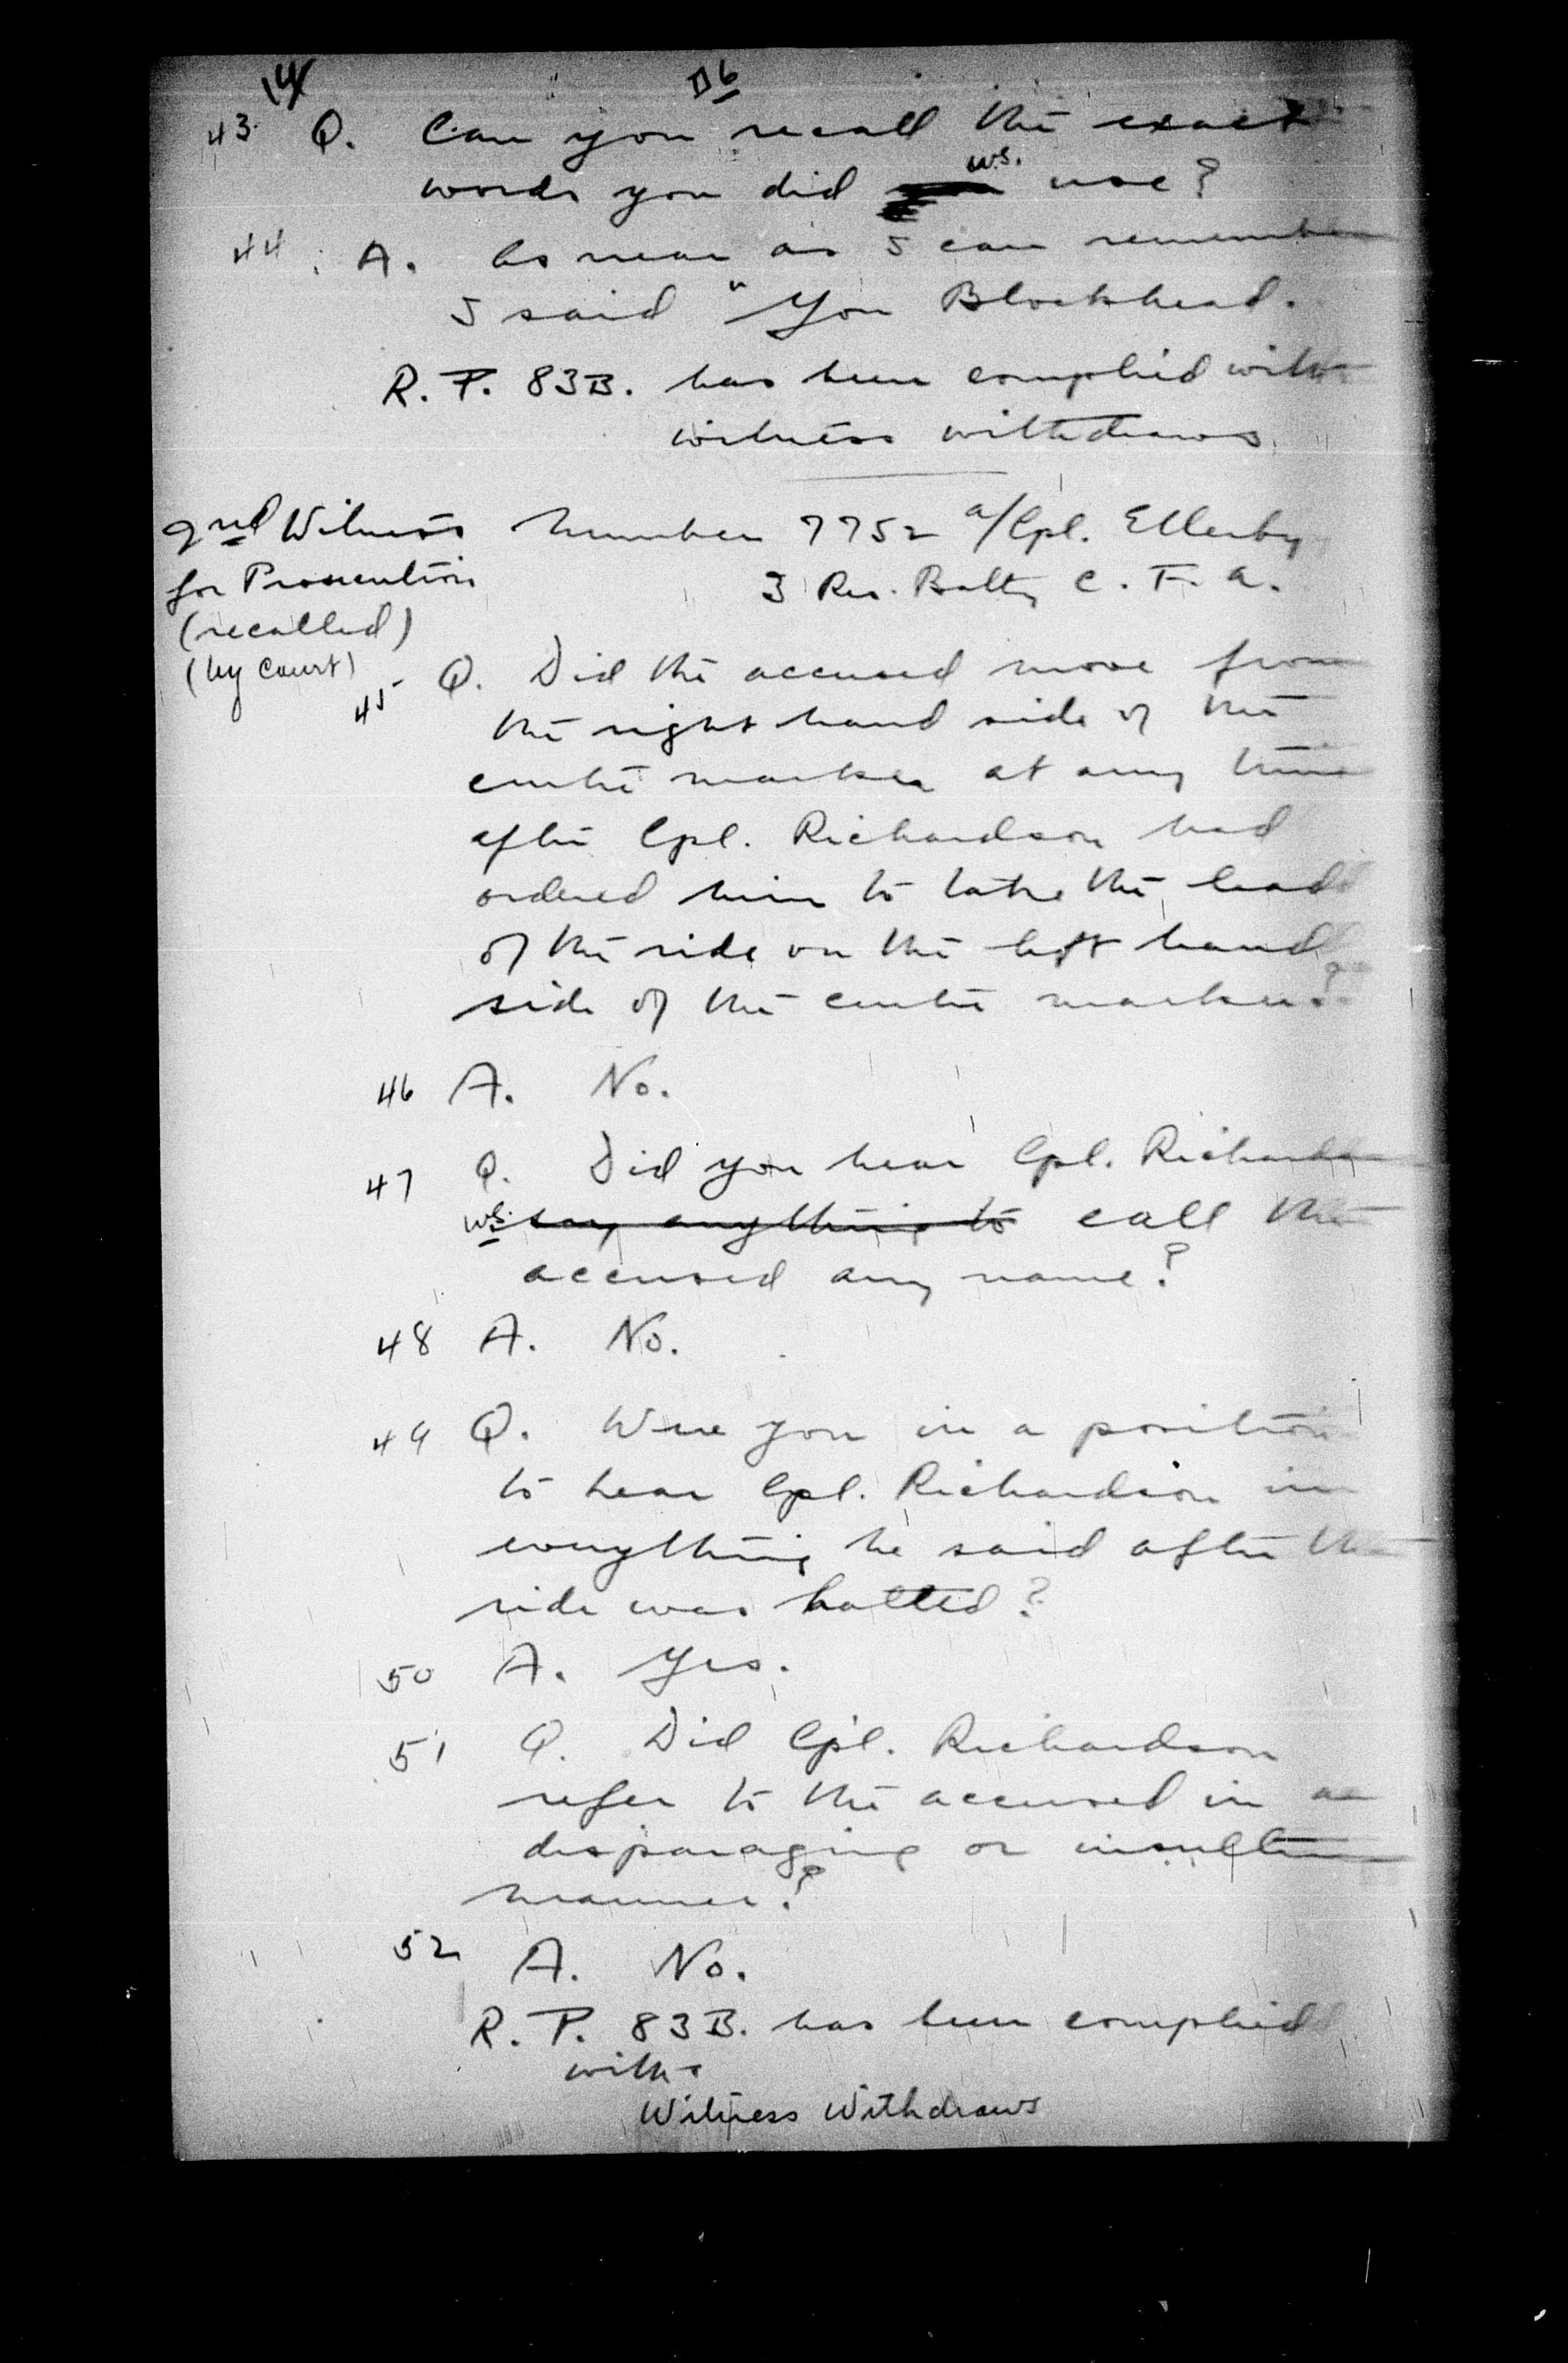 14
D6
43. Q. Can you recall the exact
words you did W.S. use?
44. A. As near as I can remember
I said "You Blockhead.
R.P. 83B. has been complied with
witness withdraws
2nd Witness Number 7752 a/Cpl. Ellerby
for Prosecution 3 Res. Batty C.F.A.
(recalled)
(by Court)
45 Q. Did the accused move from
the right hand side of the
centre marker at any time
after Cpl. Richardson had
ordered him to take the lead
of the ride on the left hand
side of the centre marker?
46 A. No.
47 Q. Did you hear Cpl. Richardson
W.S. say anything to call the
accused any name?
48 A. No.
49 Q. Were you in a position
to hear Cpl. Richardson in
everything he said after the
ride was halted?
50 A. Yes.
51 Q. Did Cpl. Richardson
refer to the accused in a
disparaging or insulting
manner?
52 A. No.
R.P. 83B. has been complied
with.
Witness Withdraws